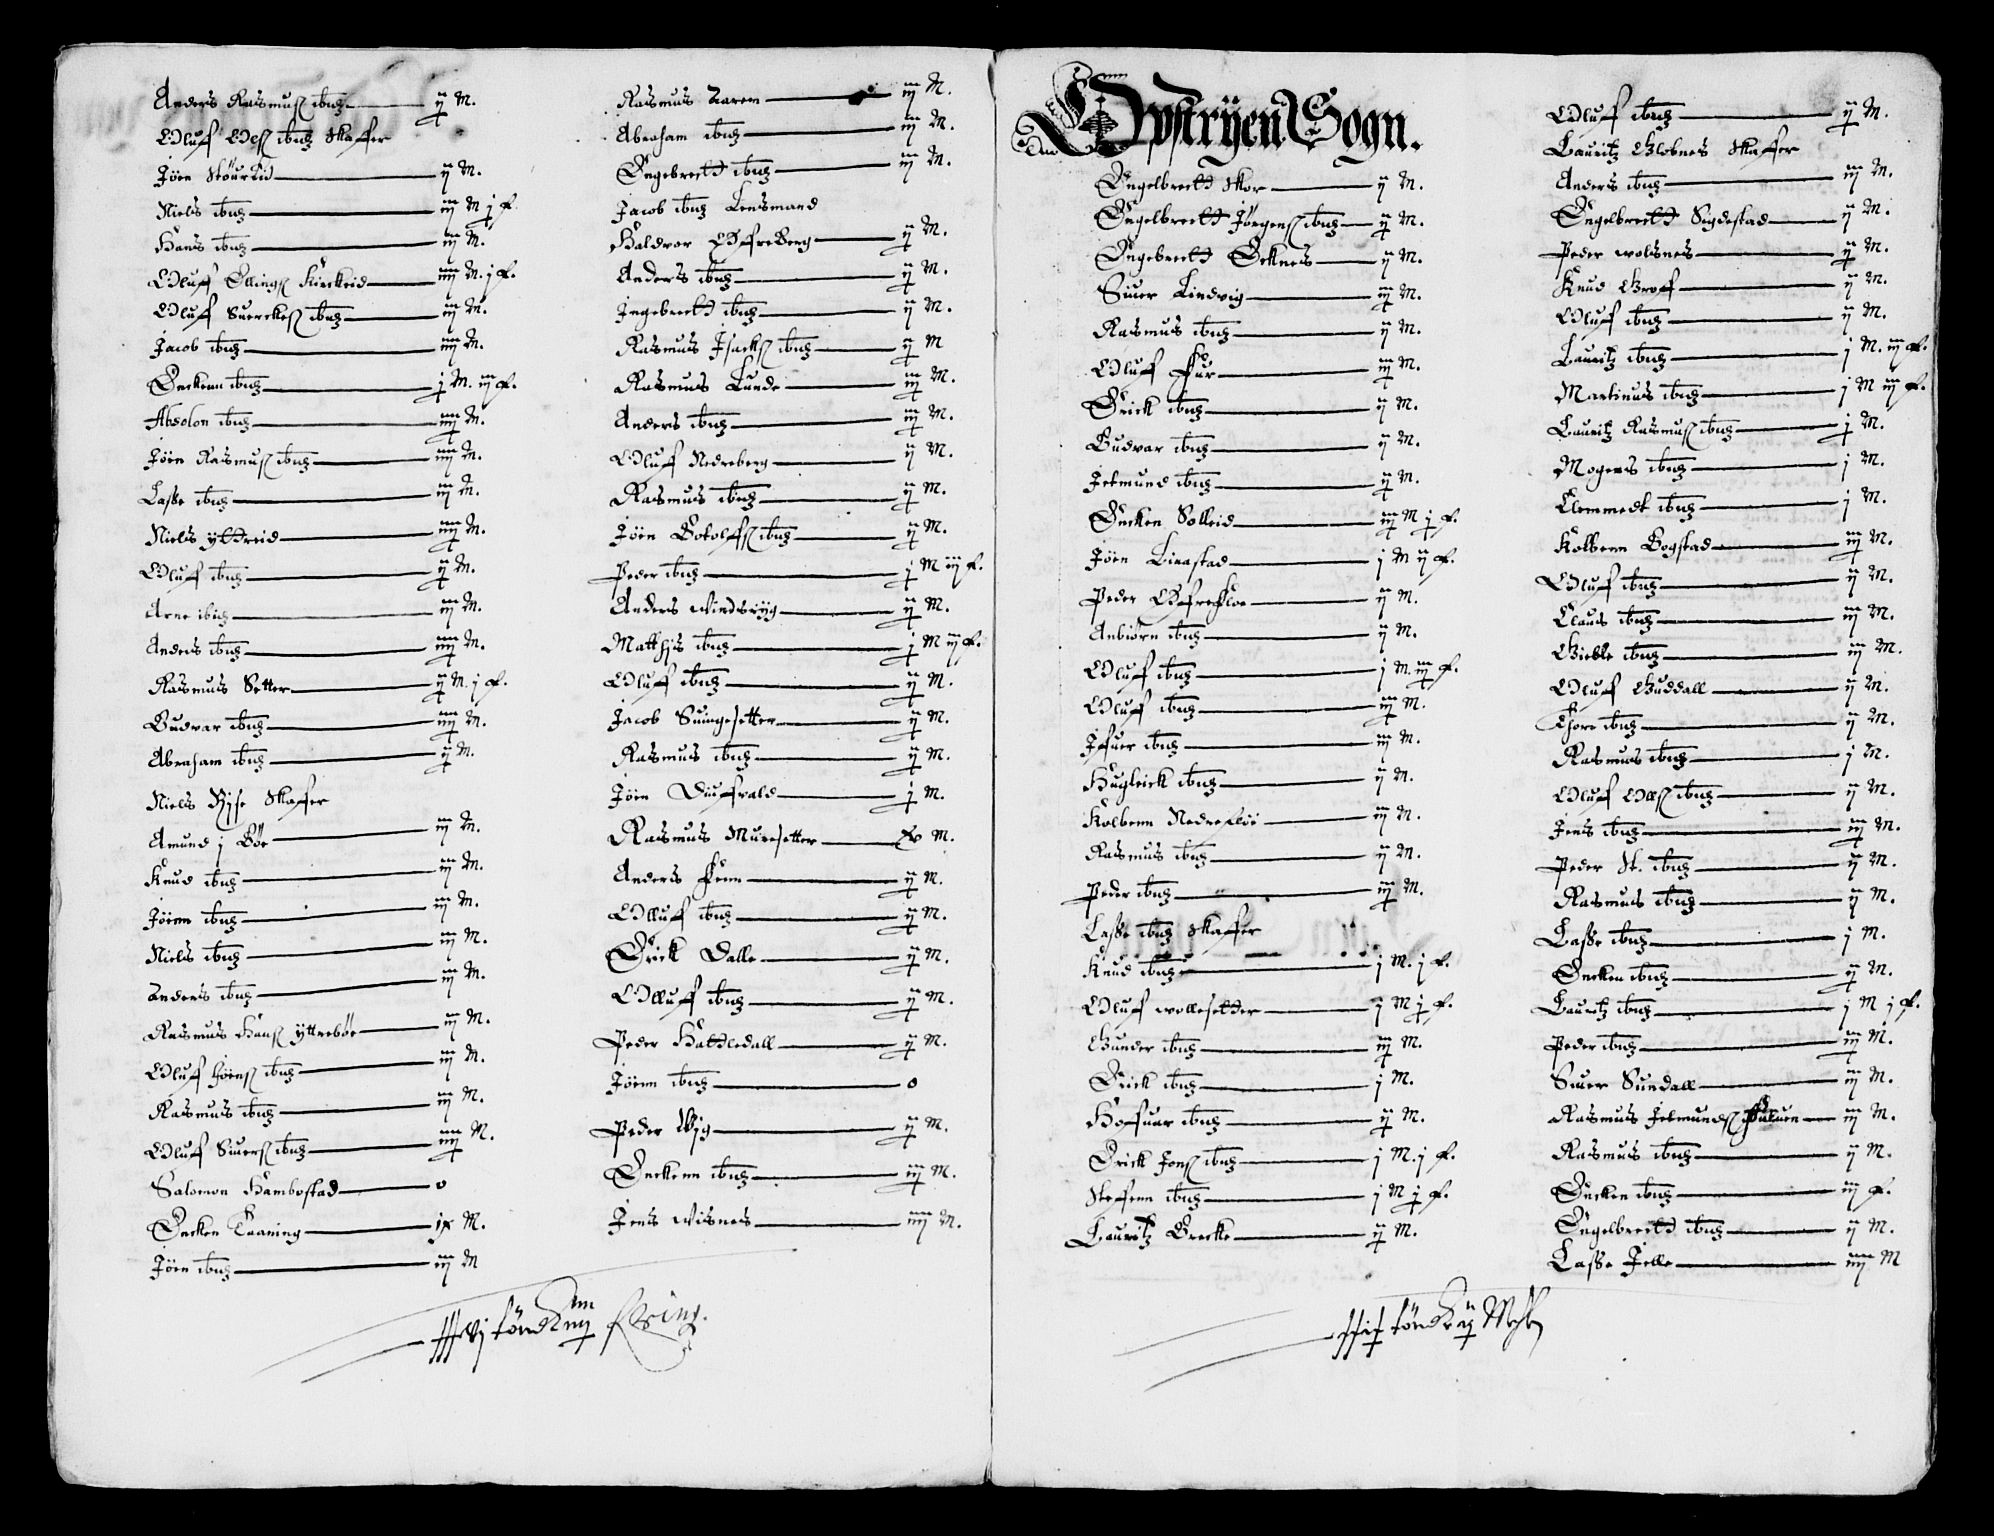 Anders Rasmuß ibid ijꝭ M.
Oluf Olß ibid Skaffer
Jöen Stöurlid ij M.
Niels ibid iij M j f.
Hans ibid iij M.
Oluff Ellingß Kirckeid iiij M. j f.
Oluf Suerckeß ibid iij M.
Jacob ibid iiij M.
Encken ibid j M. iij f.
Absolon ibid iiij M.
Jöen Rasmuß ibid iiij M.
Lasse ibid iij M.
Niels yttreid iiij M.
Oluf ibid ij M.
Arne ibid iij M.
Anders ibid iiij M.
Rasmus Setter ij M. j f.
Gudvar ibid iiij M.
Abraham ibid ij M.
Niels Rysse Skaffer
Amund j Böe iij M.
Knud ibid iij M.
Jöenn ibid iij M.
Niels ibid iij M.
Anders ibid iij M.
Rasmus Hanß yttreböe iij M.
Oluf Jöenß ibid iij M.
Rasmus ibid iij M.
Oluf Siuerß ibid iiij M.
Salomon Hambostad o
Encken Taaning ix M.
Jöen ibid iij M
Rasmus Aarem iij M.
Abraham ibid iij M.
Engebrecht ibid iij M.
Jacob ibid Lensmand
Haldvor Offreberg ij M.
Anders ibid ij M.
Ingebrecht ibid ij M.
Rasmus Isackß ibid ij M
Rasmus Lunde iij M.
Anders ibid iij M.
Oluf Nedreberg ij M.
Rasmus ibid ij M.
Jöen Botolfß ibid ij M.
Peder ibid j M iij f.
Anders Windsryg ij M.
Matthjs ibid j M iij f.
Oluf ibid ij M.
Jacob Suingesetter ij M.
Rasmus ibid ij M.
Jöen Diufvald j M.
Rasmus Muresetter M.
Anders Fenn ij M.
Olluf ibid ij M.
Erick Dalle ij M.
Olluf ibid ij M.
Peder Hattledall ij M.
Jöenn ibid o
Peder Vig ij M.
Enckenn ibid iij M.
Jens Wisnes iiij M.
Opstryen Sogn.
Engelbrecht Skor ij M.
Engelbrecht Jörgenß ibid ij M.
Engebrecht Ecknes ij M.
Siuer Lindvig iij M.
Rasmus ibid ij M.
Oluf Fur iij M.
Erick ibid ij M.
Gudvar ibid ij M.
Jetmund ibid ij M.
Encken Solleid iij M j f.
Jöen Linastad j M ij f.
Peder Ofrefloe ij M.
Anbiörn ibid ij M.
Oluf ibid j M. iij f.
Oluf ibid iij M.
Ifuer ibid iij M.
Hugleick ibid ij M.
Kolbenn Nedrefloi iij M.
Rasmus ibid ij M.
Peder ibid iij M.
Lasse ibid Skaffer
Knud ibid j M. j f.
Oluf Wollesetter j M j f.
Gunder ibid iij M.
Erick ibid j M.
Hofuar ibid ij M.
Erick Jonß ibid j M. j f.
Steffenn ibid j M j f.
Lauritz Brecke ij M.
Oluf ibid ij M.
Lauritz Glomnes Skaffer
Anders ibid iij M.
Engelbrecht Sigdestad ij M.
Peder Wolsnes ij M.
Knud Grof ij M.
Oluf ibid ij M.
Lauritz ibid j M. iij f.
Martinus ibid j M iij f.
Lauritz Rasmuß ibid j M.
Mogens ibid j M.
Clemmedt ibid j M.
Kolbenn Bogstad iij M.
Oluf ibid ij M.
Claus ibid iij M.
Gieble ibid iij M.
Oluf Guddall ij M.
Thore ibid ij M.
Rasmus ibid j M.
Oluf Olß ibid ij M.
Jens ibid iij M.
Peder St. ibid ij M.
Rasmus ibid ij M.
Lasse ibid j M.
Encken ibid ij M.
Lauritz ibid j M j f.
Peder ibid iij M.
Siuer Sundall iij M.
Rasmus Jetmundß iij M.
Rasmus ibid ij M.
Encken ibid iij f.
Engelbrecht ibid ij M.
Lasse Jelle iiij M